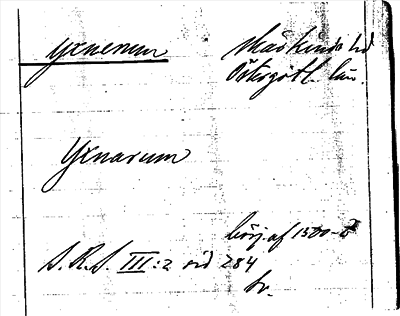 Yxnerum Skärkinds hd
Östergötl. län.
Yxnarum
börj. af 1500-t
S. R. S. III:2 sid 284
br.